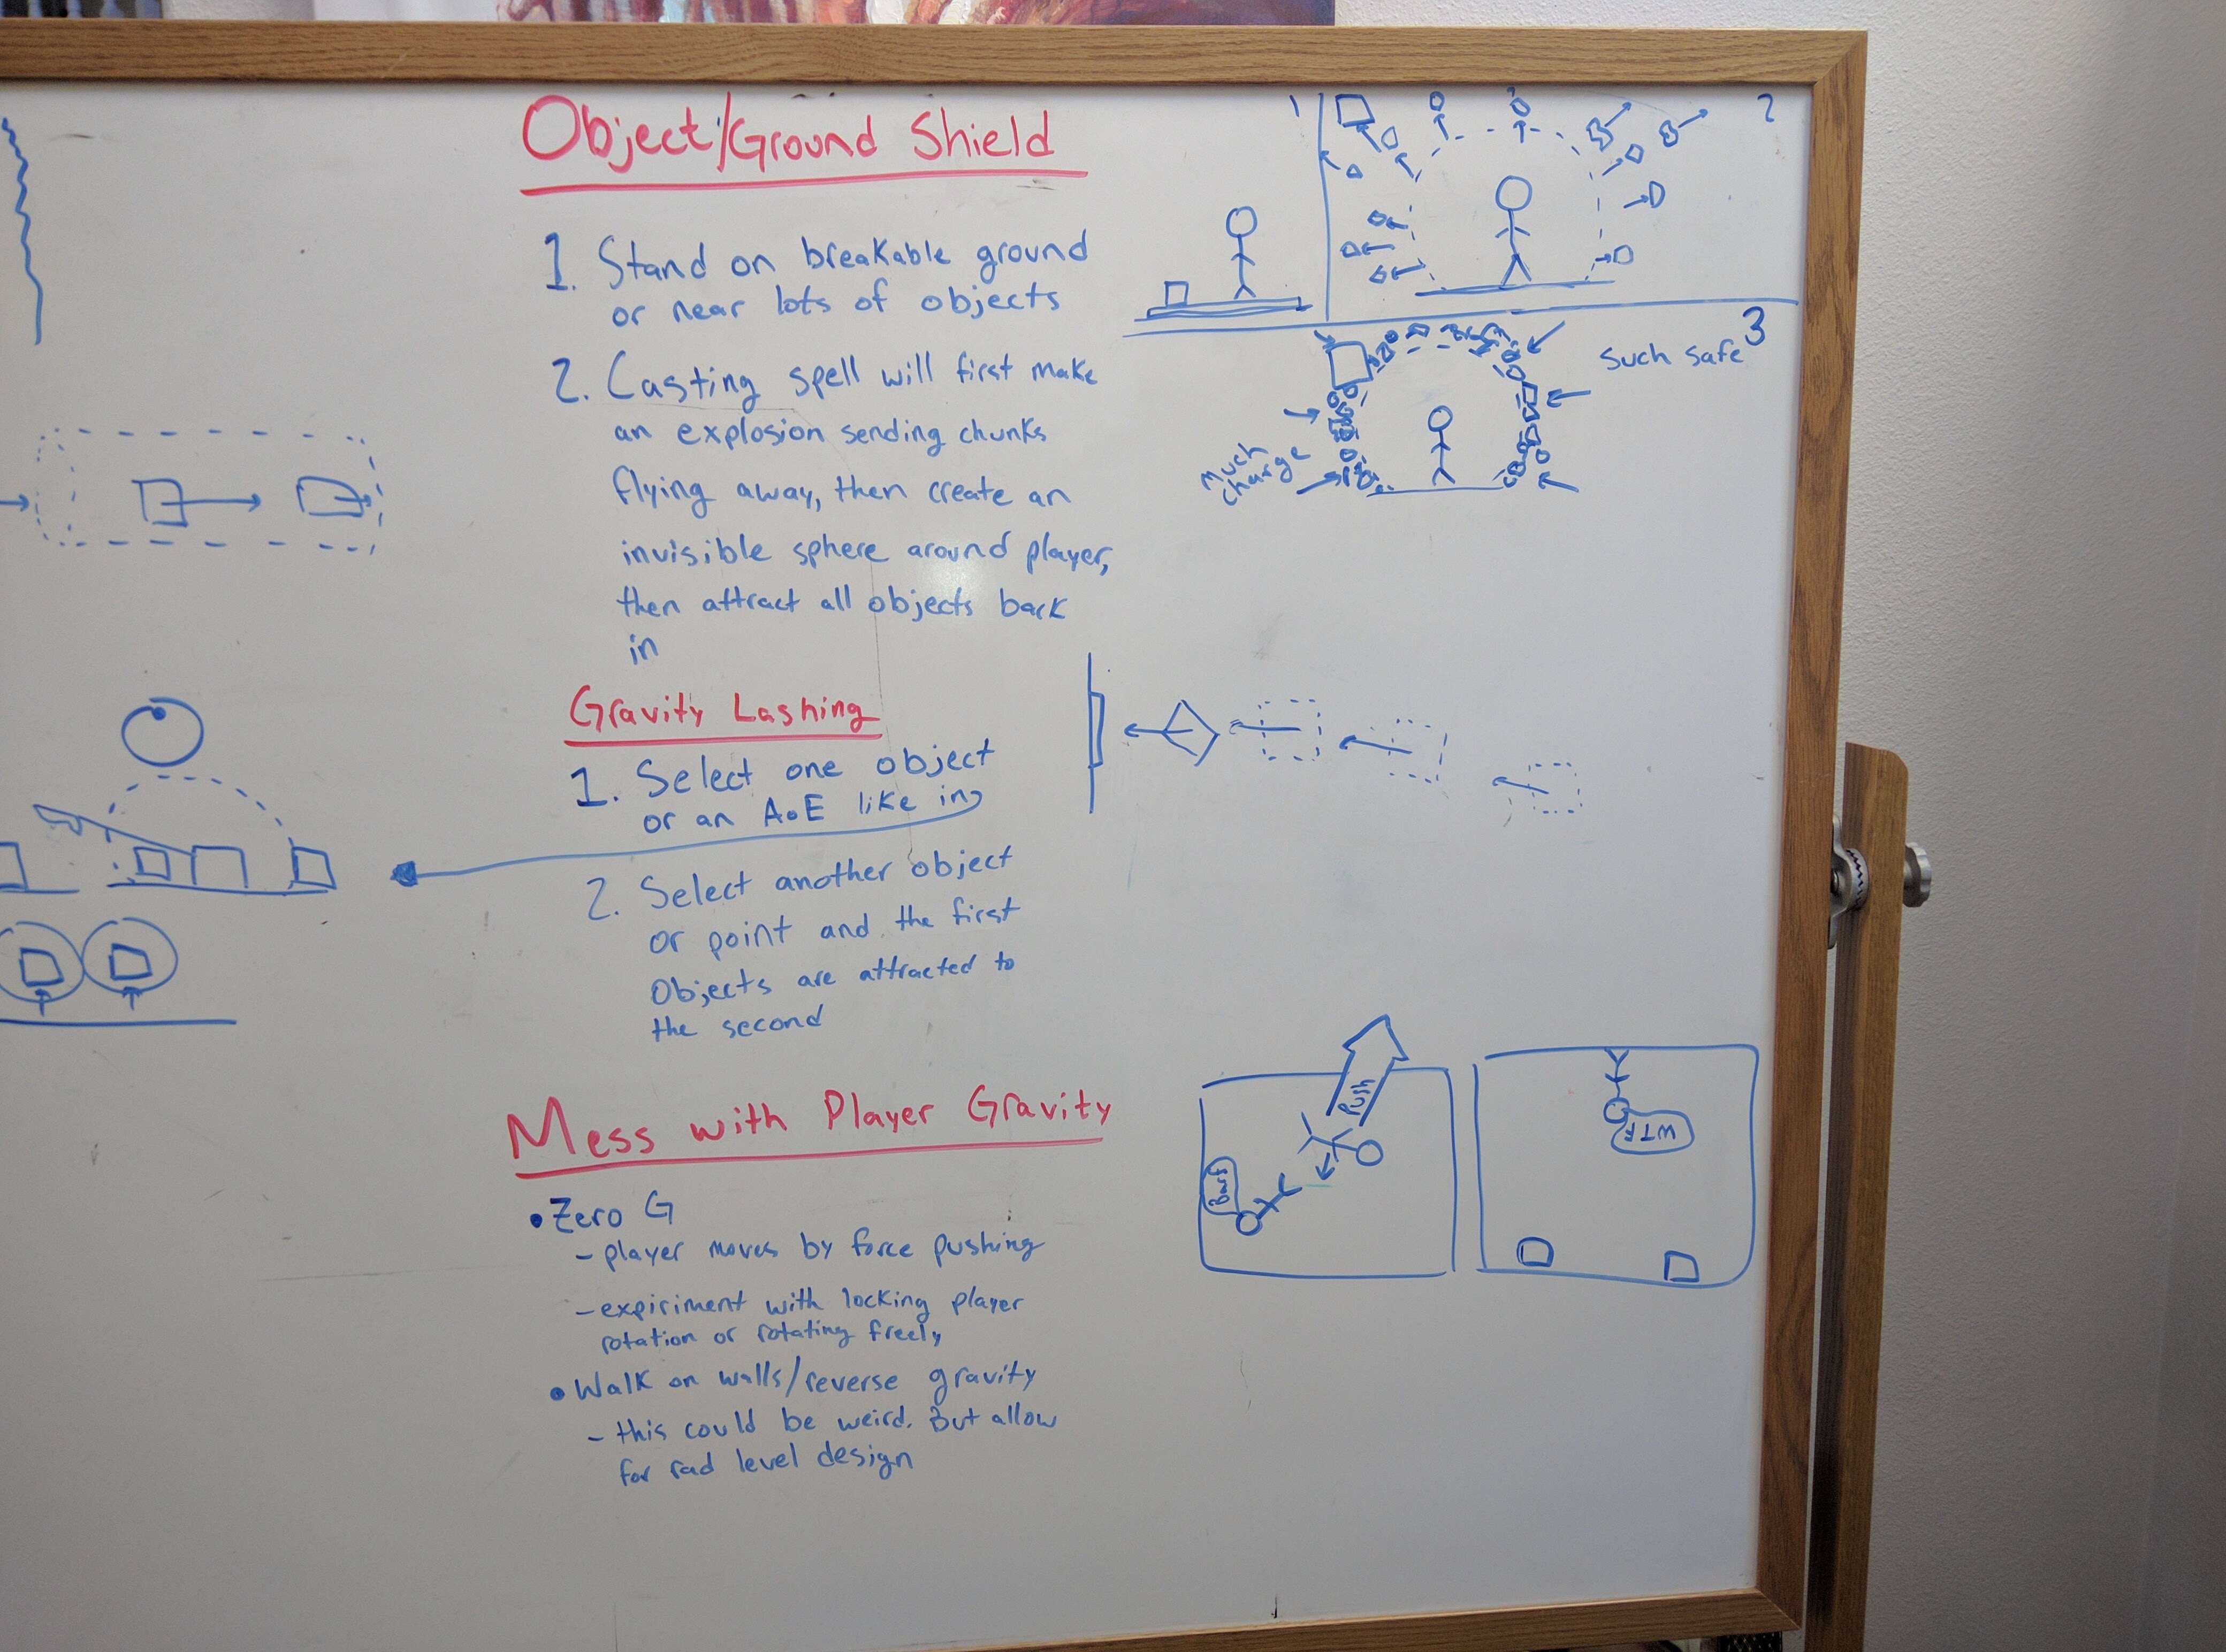 Object/Ground Shield
1. Stand on breakable ground
or near lots of objects
2. Casting spell will first make
an explosion sending chunks
flying away, then create an
invisible sphere around player,
then attract all objects back
in
1
2
3
Such safe
Much
charge
Gravity Lashing
1. Select one object
or an AoE like in
2. Select another object
or point and the first
Objects are attracted to
the second
Mess with Player Gravity
• Zero G
- player moves by force pushing
- expiriment with locking player
rotation or rotating freely
• Walk on walls/reverse gravity
- this could be weird. But allow
for rad level design
Push
Barf
WTF